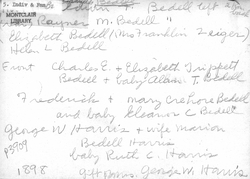 5. Indiv & Fam
MONTCLAIR
LIBRARY
Bedell left
Raynor M. Bedell
Elizabeth Bedell (Mrs Franklin Zeiger)
Helen L Bedell
Front Charles E + Elizabeth Trippett
Bedell + baby Alan T. Bedell
Frederick + Mary Crehore Bedell
and baby Eleanor C Bedell
George W Harris + wife Marion
Bedell Harris
P3909
baby Ruth C. Harris
1898
George W. Harris